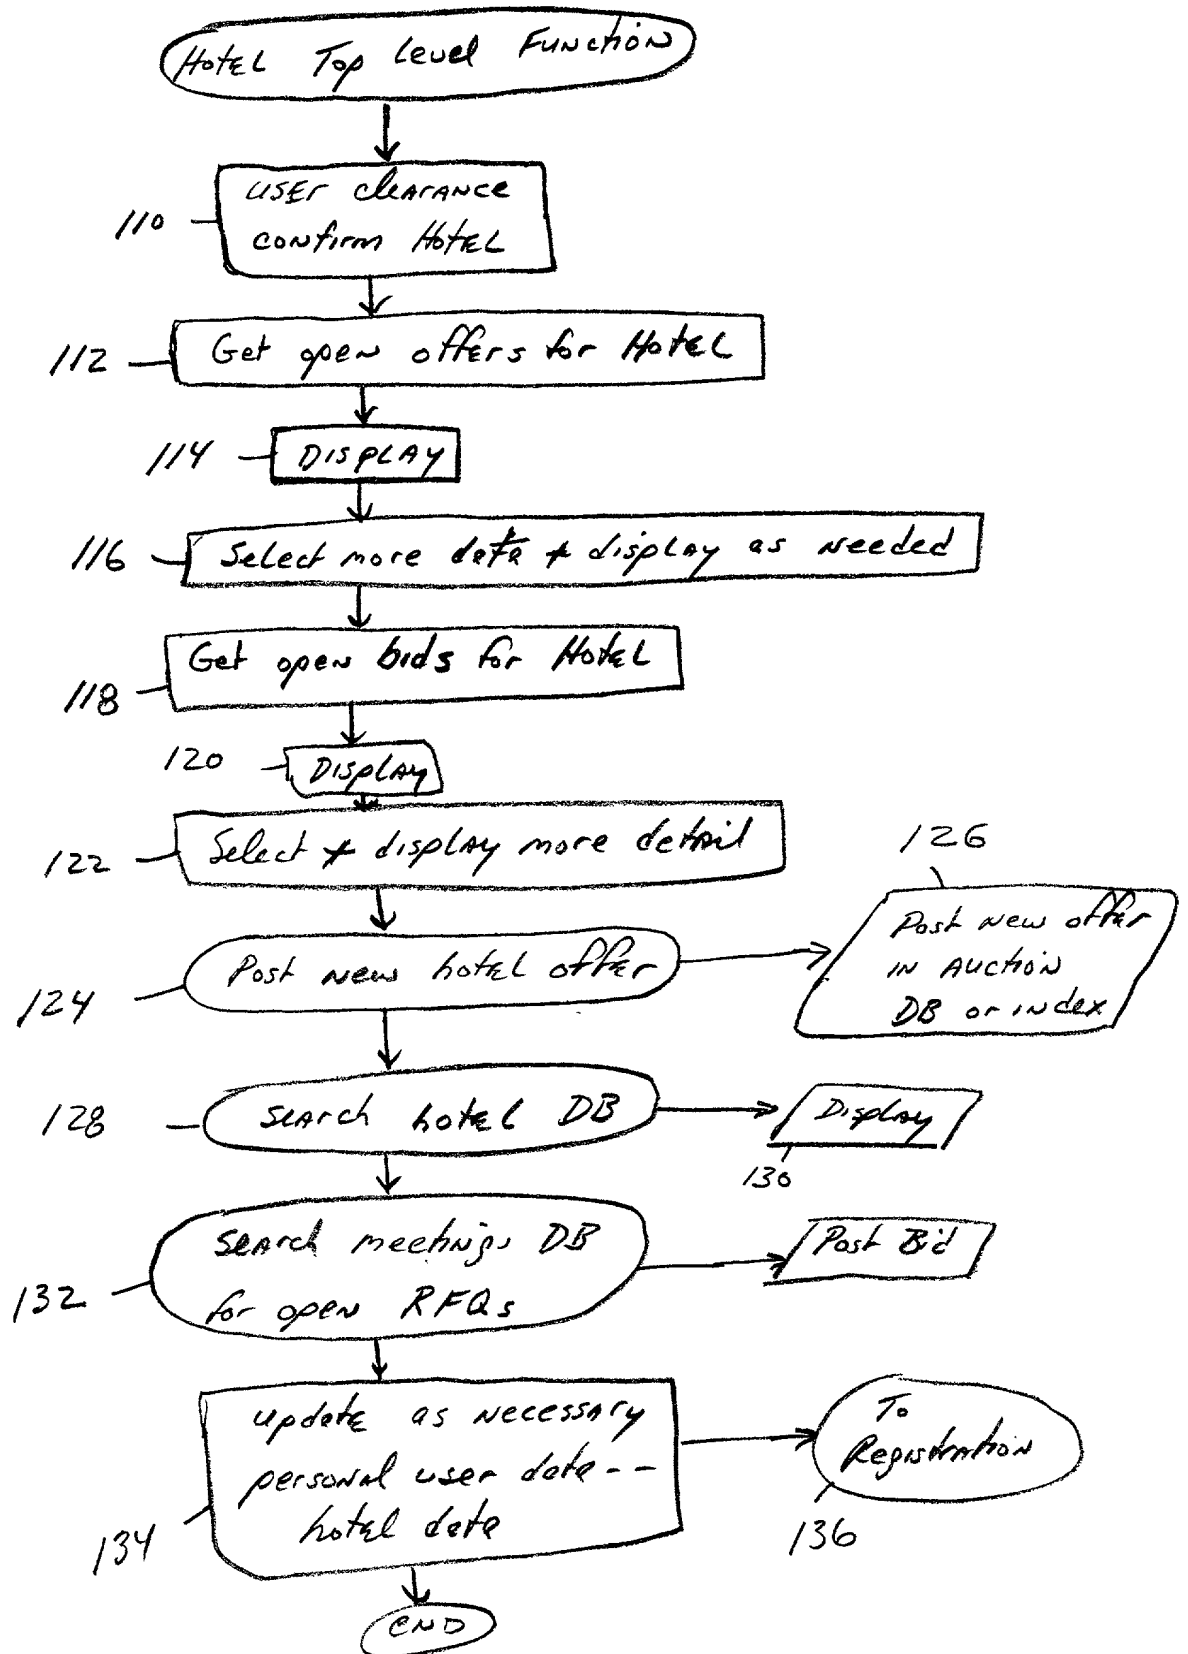 HOTEL Top Level Function
110
USEr clearance
confirm Hotel
112
Get open offers for Hotel
114
DISPLAY
116
Select more data + display as needed
118
Get open bids for Hotel
120
Display
122
Select + display more detail
126
124
Post new hotel offer
Post new offer
in Auction
DB or index
128
Search hotel DB
Display
130
132
Search meetings DB
for open RFQs
Post Bid
134
update as necessary
personal user data--
hotel data
To
Registration
136
END